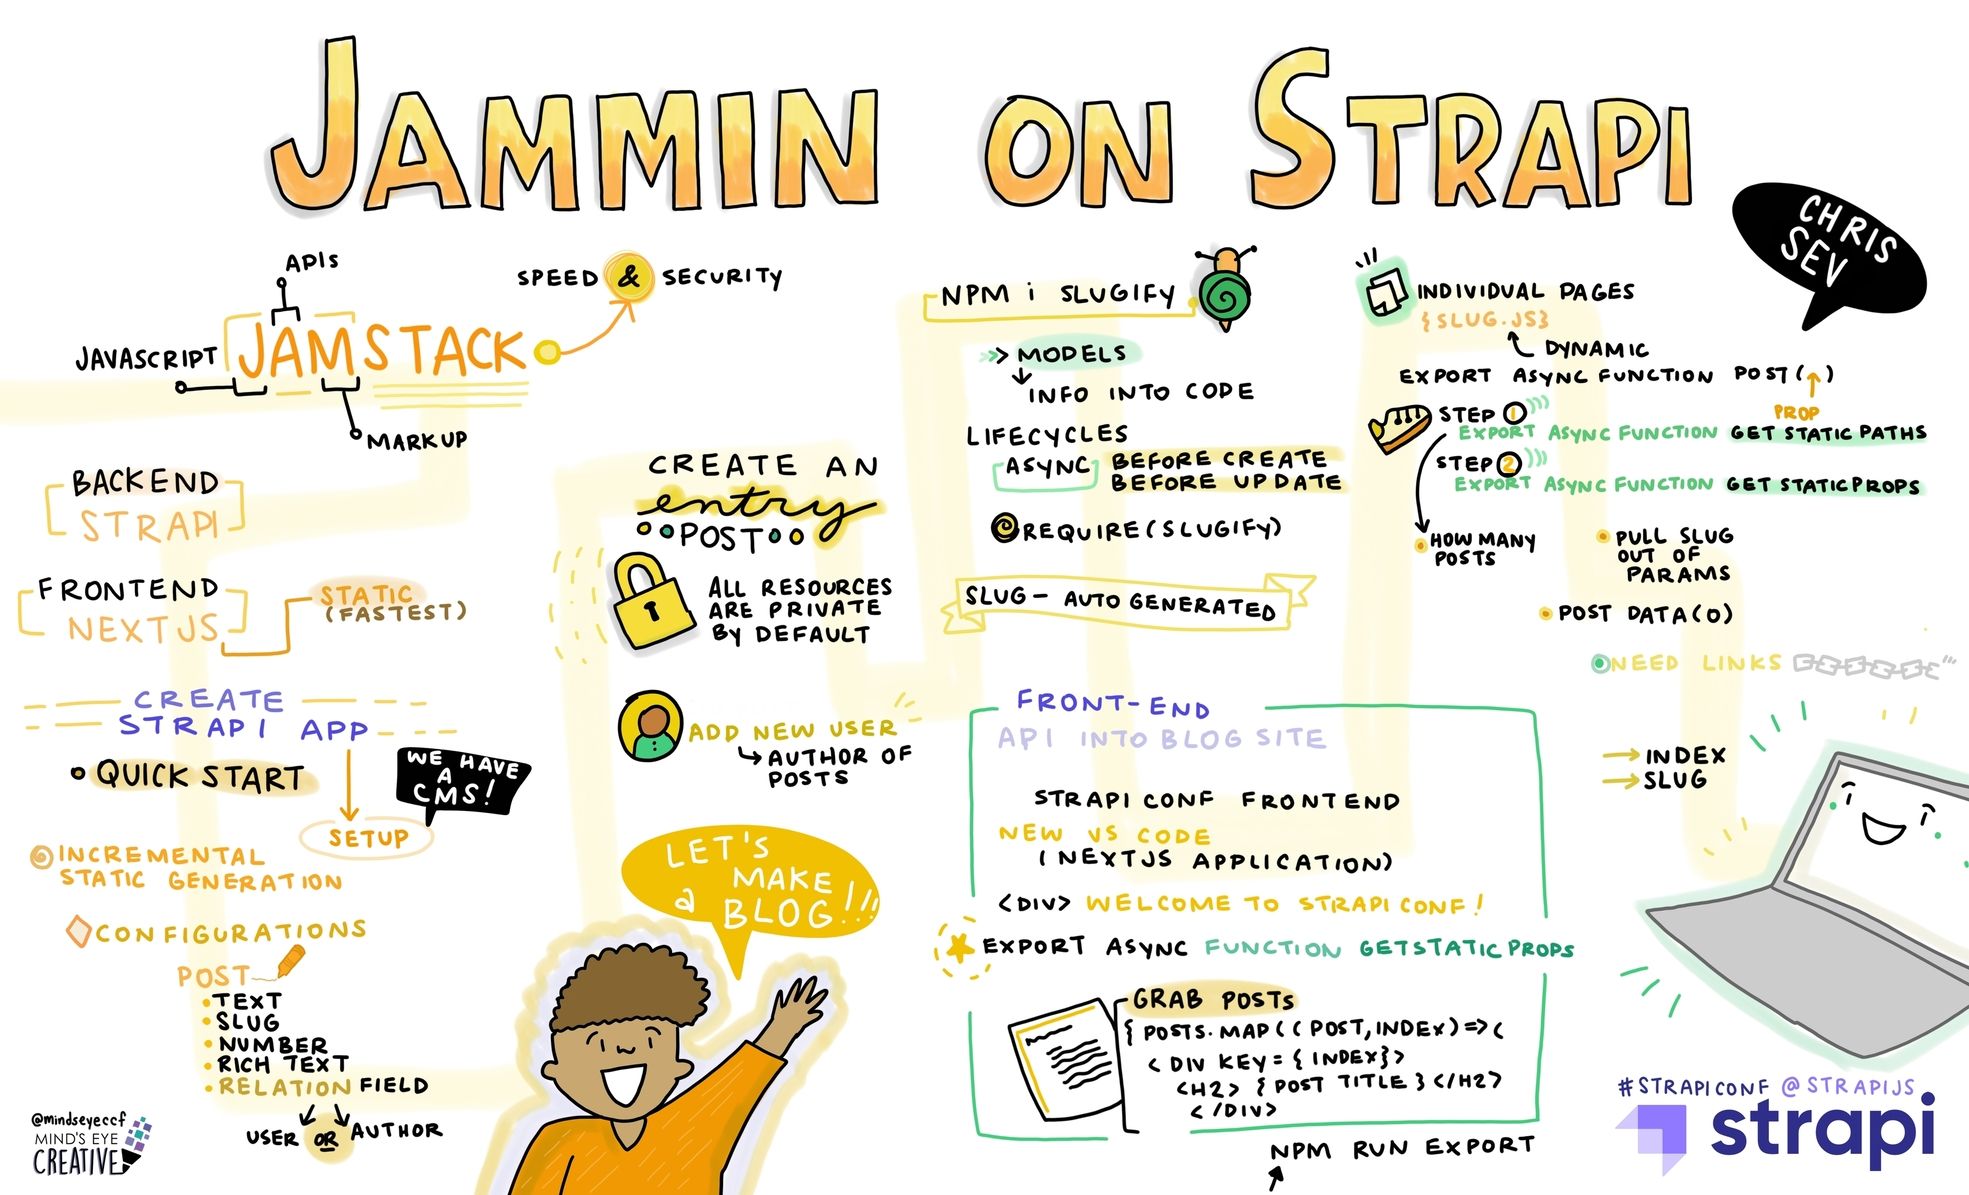 JAMMIN ON STRAPI
CHRIS
SEV
APIs
JAVASCRIPT
JAMSTACK
MARKUP
SPEED & SECURITY
BACKEND
STRAPI
FRONTEND
NEXTJS
STATIC
(FASTEST)
CREATE
STRAPI APP
• QUICK START
SETUP
WE HAVE
A
CMS!
INCREMENTAL
STATIC GENERATION
CONFIGURATIONS
POST
• TEXT
• SLUG
• NUMBER
• RICH TEXT
• RELATION FIELD
USER OR AUTHOR
@mindseyeccf
MIND'S EYE
CREATIVE
CREATE AN
entry
POST
ALL RESOURCES
ARE PRIVATE
BY DEFAULT
ADD NEW USER
↳ AUTHOR OF
POSTS
LET'S
MAKE
a BLOG!!!
NPM i SLUGIFY
>> MODELS
↓
INFO INTO CODE
LIFECYCLES
ASYNC BEFORE CREATE
BEFORE UPDATE
REQUIRE(SLUGIFY)
SLUG - AUTO GENERATED
FRONT-END
API INTO BLOG SITE
STRAPI CONF FRONTEND
NEW VS CODE
(NEXTJS APPLICATION)
<DIV> WELCOME TO STRAPI CONF!
EXPORT ASYNC FUNCTION GETSTATICPROPS
GRAB POSTS
{ POSTS.MAP((POST,INDEX)=>(
<DIV KEY={INDEX}>
<H2> {POST TITLE}</H2>
</DIV>
NPM RUN EXPORT
INDIVIDUAL PAGES
{SLUG.JS}
DYNAMIC
EXPORT ASYNC FUNCTION POST(↑)
PROP
STEP 1
EXPORT ASYNC FUNCTION GET STATIC PATHS
STEP 2
EXPORT ASYNC FUNCTION GET STATIC PROPS
• HOW MANY
POSTS
• PULL SLUG
OUT OF
PARAMS
• POST DATA(0)
NEED LINKS
→ INDEX
→ SLUG
#STRAPICONF @STRAPIJS
strapi